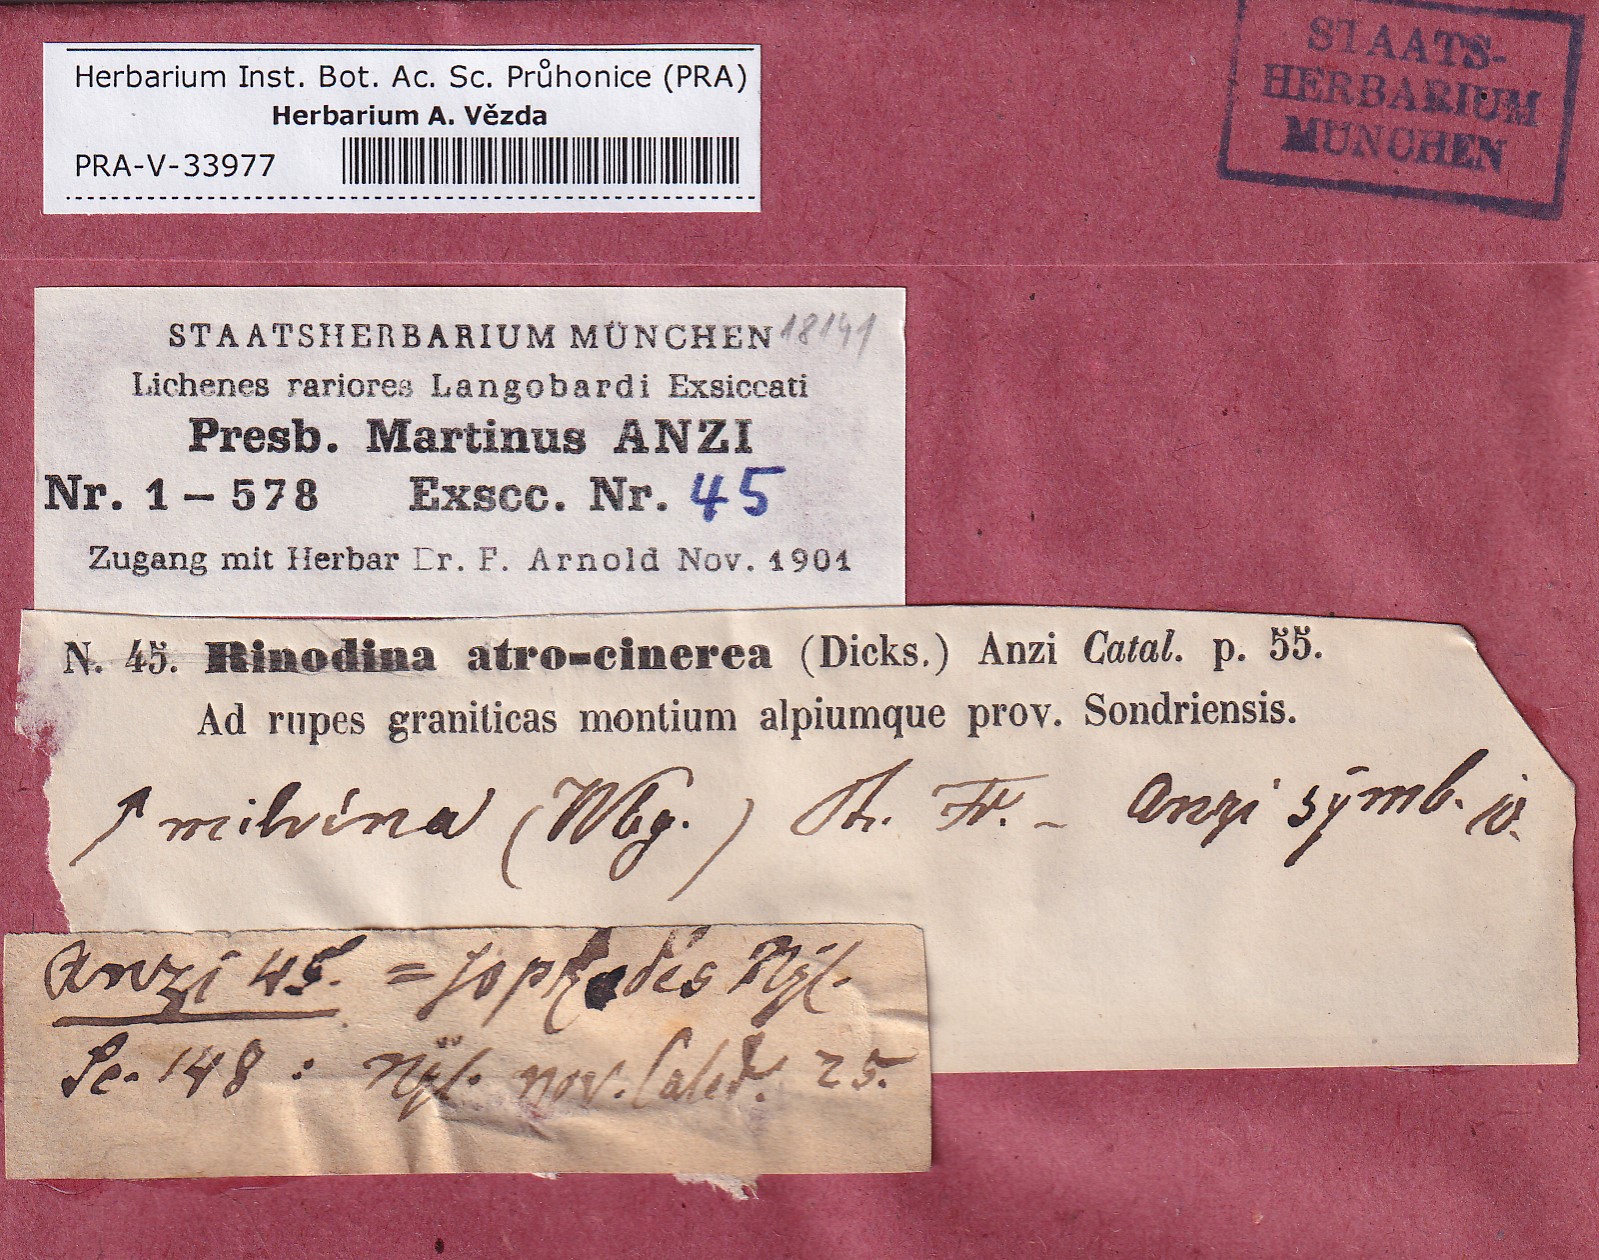 Herbarium Inst. Bot. Ac. Sc. Průhonice (PRA)
Herbarium A. Vězda
PRA-V-33977
STAATS-
HERBARIUM
MÜNCHEN
STAATSHERBARIUM MÜNCHEN 18141
Lichenes rariores Langobardi Exsiccati
Presb. Martinus ANZI
Nr. 1 – 578 Exscc. Nr. 45
Zugang mit Herbar Dr. F. Arnold Nov. 1901
N. 45. Rinodina atro-cinerea (Dicks.) Anzi Catal. p. 55.
Ad rupes graniticas montium alpiumque prov. Sondriensis.
milvina (Wbg.) Th. Fr. – Anzi symb.
Anzi 45. = Nyl.
148 : Nyl. nov. Caled. 25.